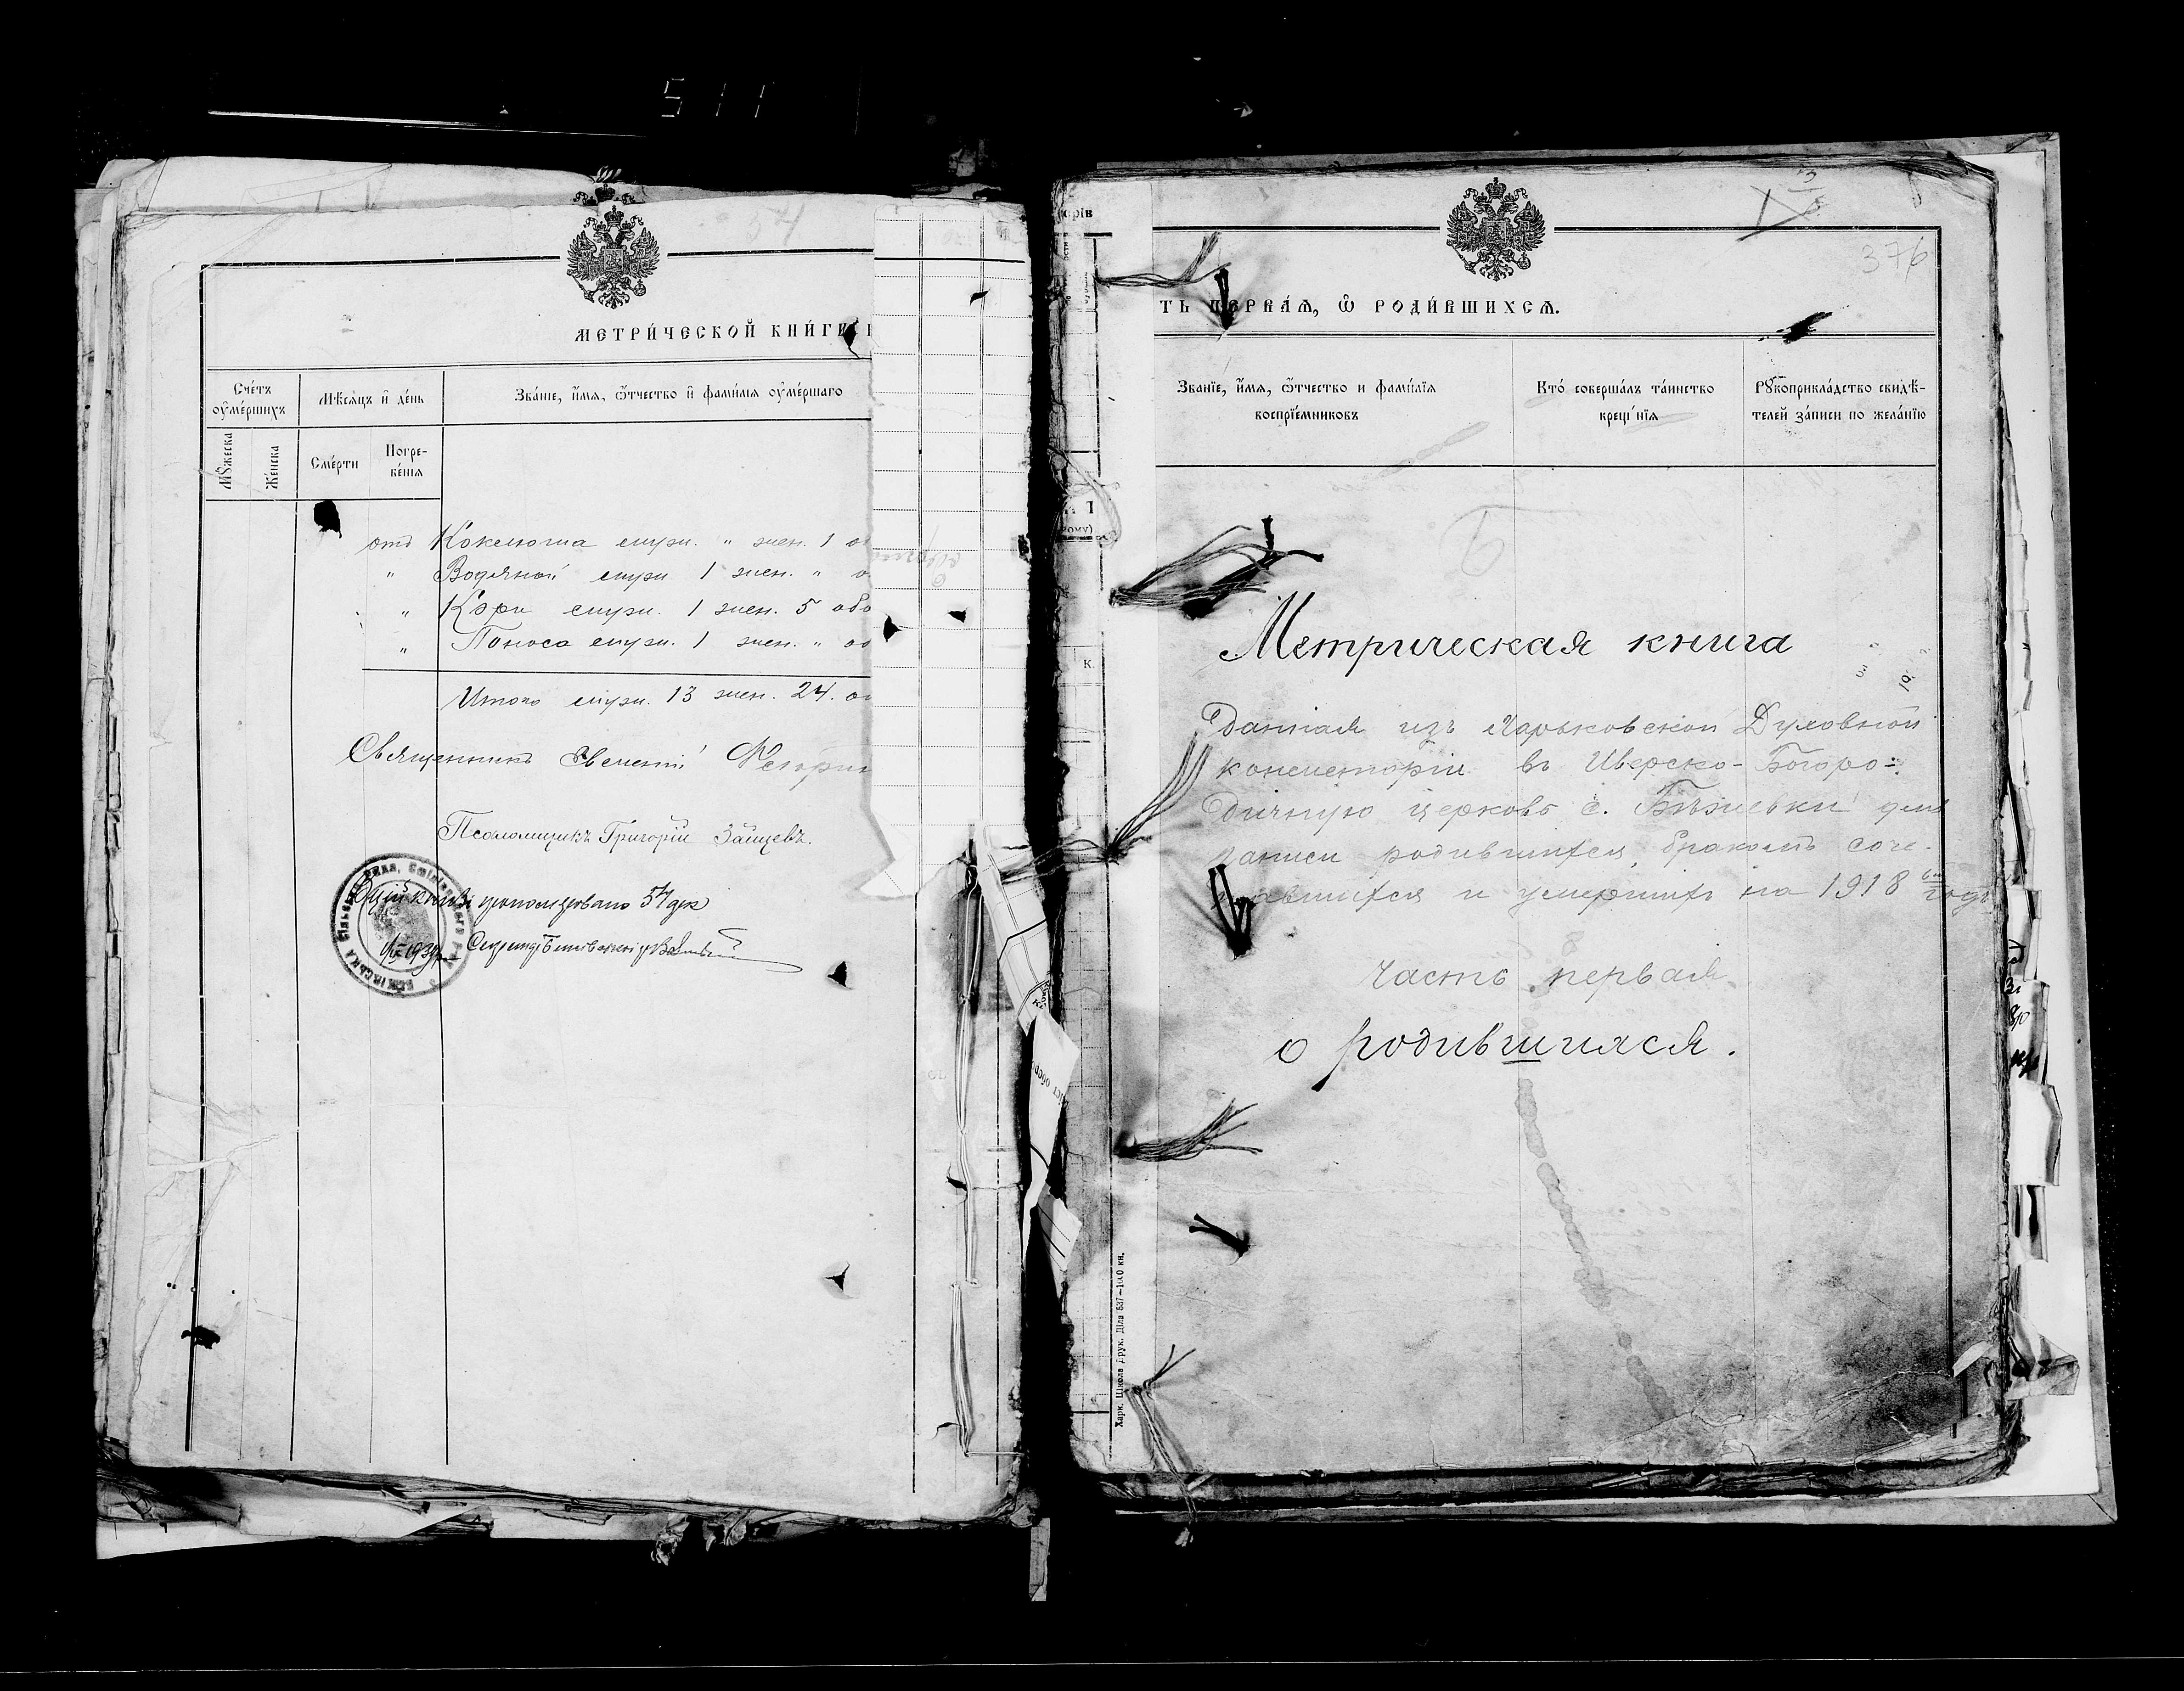 511
МЕТРИ́ЧЕСКОЙ КНИ́ГИ
Сче́тъ оу҆ме́ршихъ
Мѣ́сяцъ и҆ де́нь
Зва́ніе, и҆́мя, ѻ҆́тчество и҆ фами́лїя оу҆ме́ршаго
Мꙋжеска
Же́нска
Сме́рти
Погре-
бе́нїя
отъ Коклюша муж. „ жен. 1
„ Водяной муж. 1 жен. „
„ Кори муж. 1 жен. 5 обо
„ Поноса муж. 1 жен. „
Итого муж. 13 жен. 24.
Священникъ Евгеній
Псаломщикъ Григорій Зайцевъ.
57
ТЬ ПЕРВА́Я, Ѡ҆ РОДИ́ВШИХСЯ.
376
Зва́нїе, и҆́мя, ѻ҆́тчество и фами́лїя
воспрїе́мниковъ
Кто́ соверша́лъ та́инство
креще́нїя
Рꙋкоприкла́дство свидѣ́-
телей за́писи по жела́нїю
Метрическая книга
данная изъ Харьковской Духовной
консисторіи въ Иверско-Богоро-
дичную церковь с. Бѣжѣевки для
записи родившихся, бракомъ соче-
тавшихся и умершихъ на 1918 годъ
Часть первая
о родившихся.
Харк. Школа Друк. Діла 537—